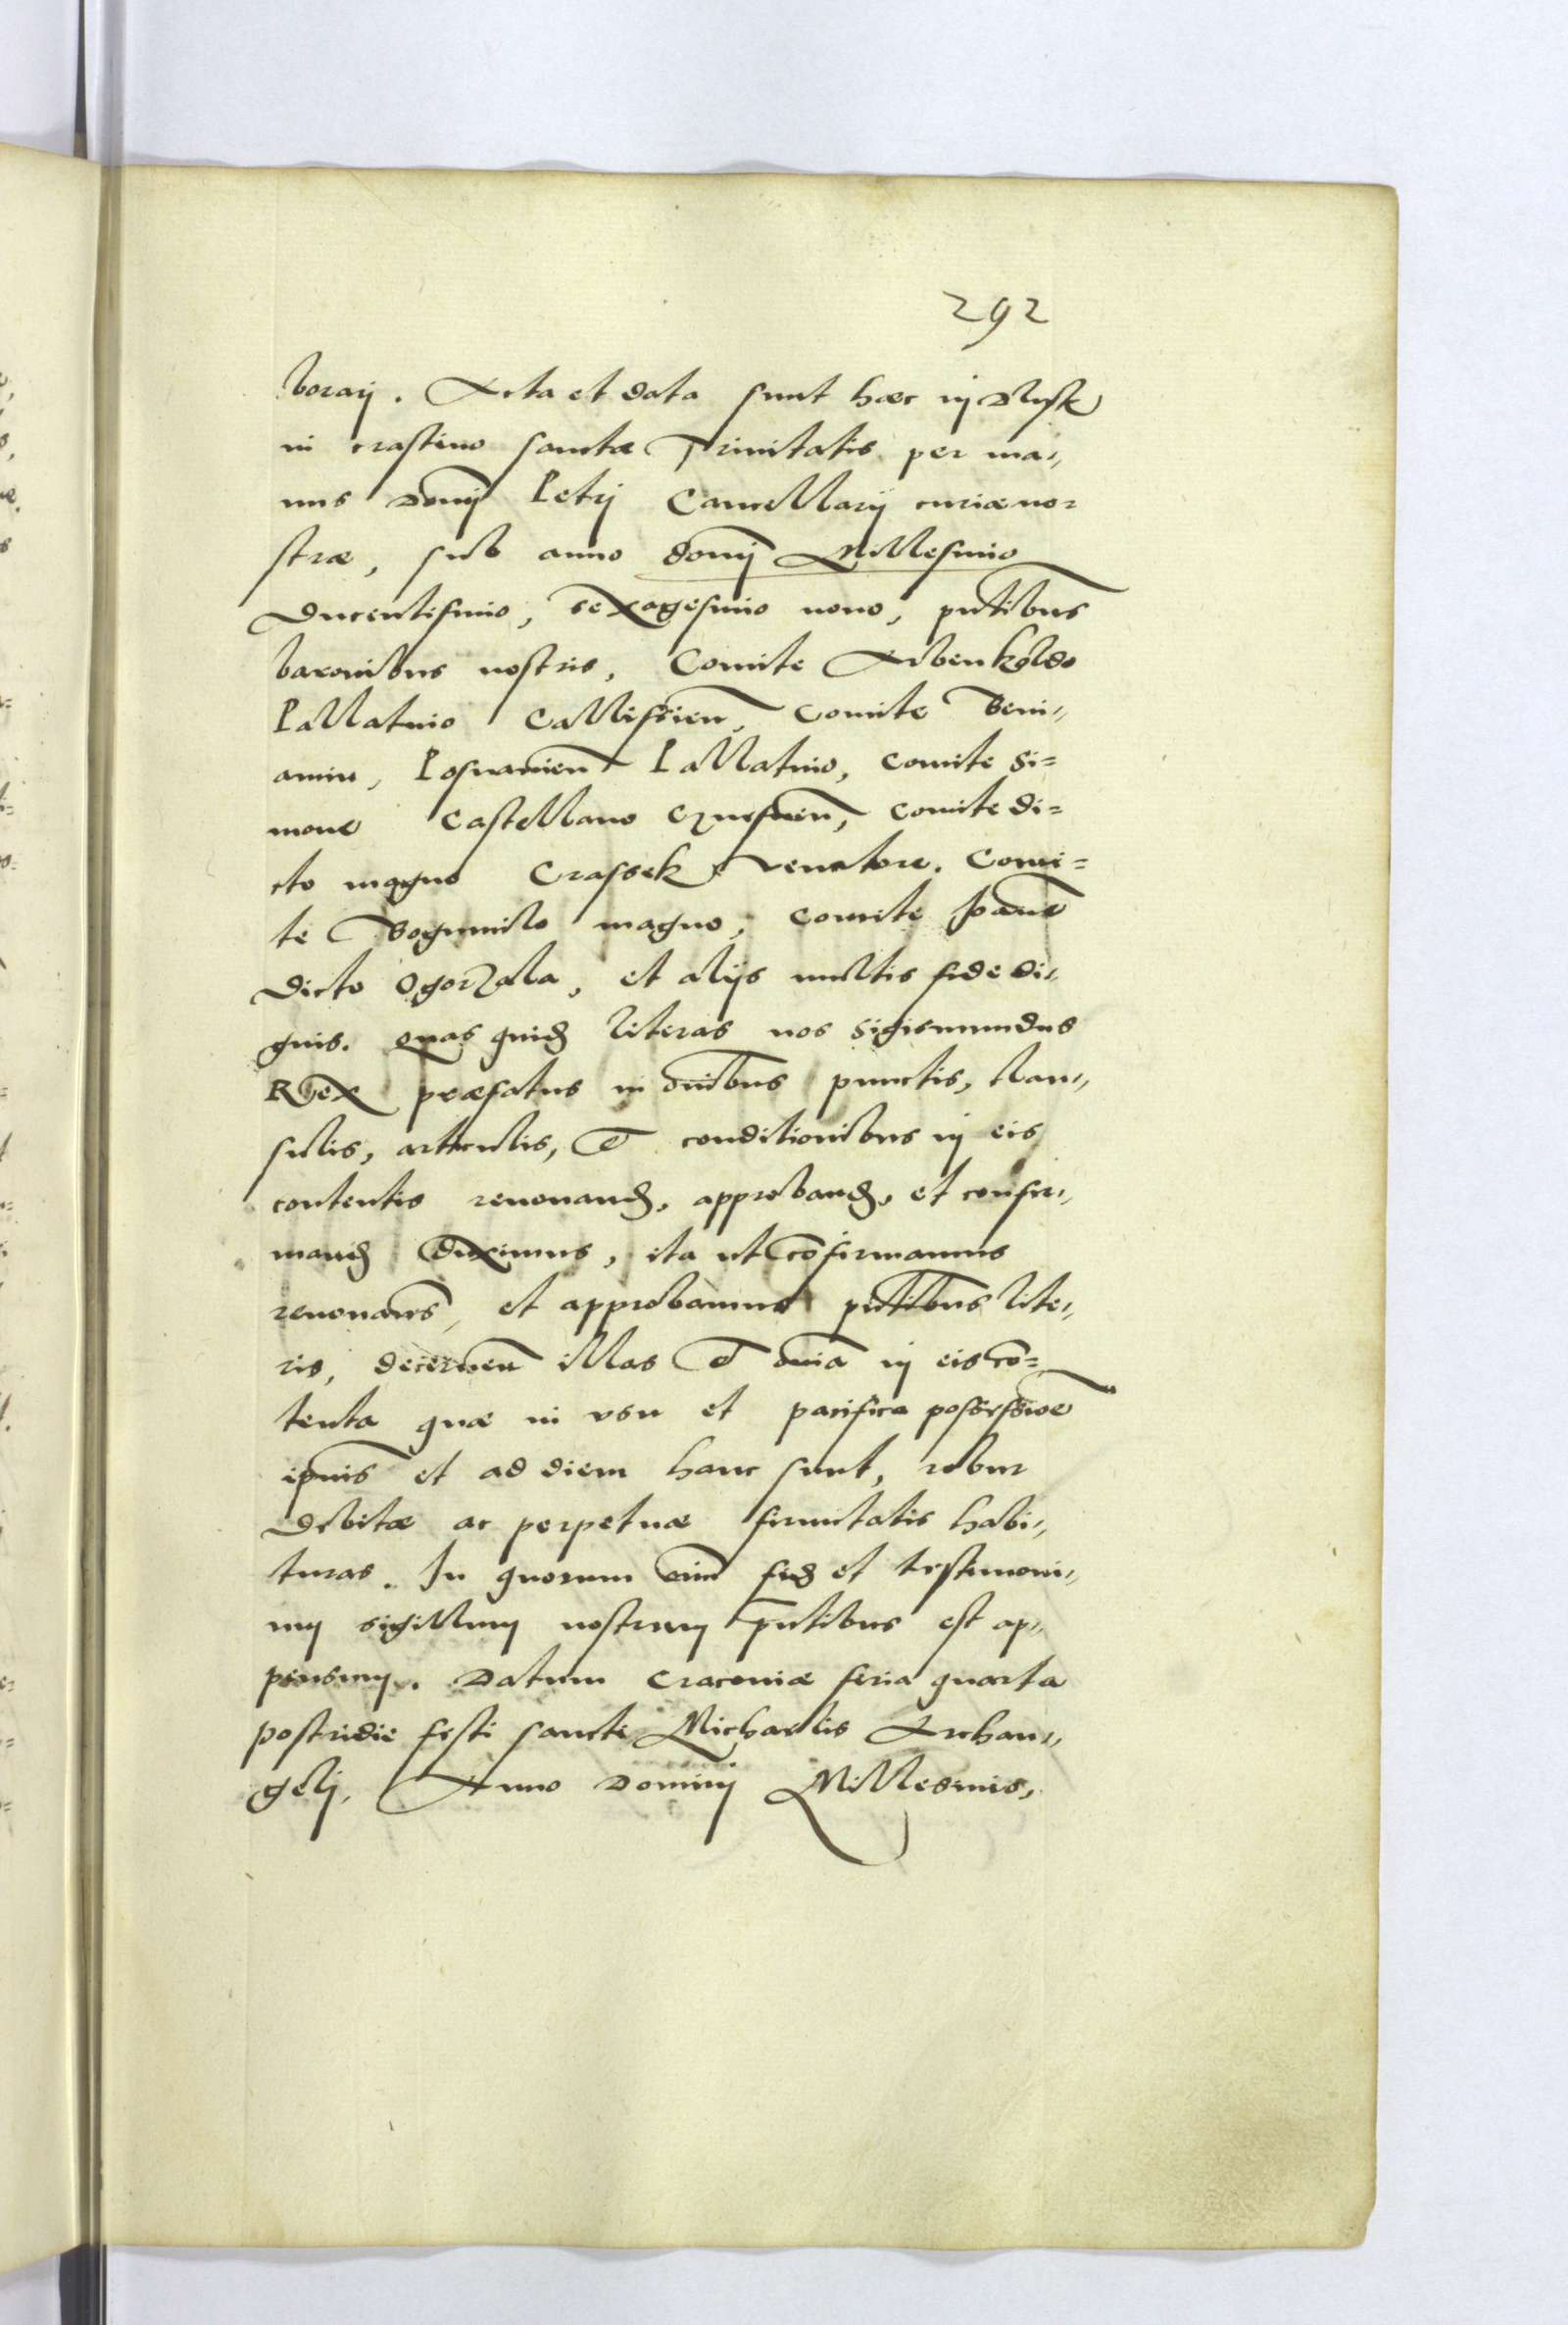 292
borari. Acta et data sunt hæc in Dlusk
in crastino sanctæ Trinitatis per ma„
nus Domi Petri Cancellarij curiæ no„
stræ, sub anno domi Millesimo
Ducentesimo, Sexagesimo nono, pntibus
baronibus nostris, Comite Arkenboldo
Pallatino Callissien, comite Beni„
amin, Posnanien Pallatino, comite Si=
mone Castellano Gnesnen, comite di=
cto magno Crassek venatore. Comi=
te Bogumilo magno, comite Joanne
Dicto Ogorzala, et alijs multis fide di„
gnis. Quas quid literas nos Sigismundus
Rex præfatus in oibus punctis, clau„
sulis, articulis, et conditionibus in eis
contentis renovand, approband, et confir„
mand duximus, ita ut cofirmamus
renovams, et approbamus pntibus lite„
ris, decernen illas et omia in eis co=
tenta quæ in usu et pacifica possessioe
ipsius et ad diem hanc sunt, robur
Debitæ ac perpetuæ firmitatis habi„
turas. In quorum oim fid et testimoni„
um sigillum nostrum pntibus est ap„
pensum. Datum Cracoviæ feria quarta
postridie festi sancti Michaelis Archan„
geli, Anno Domini Millesimo,